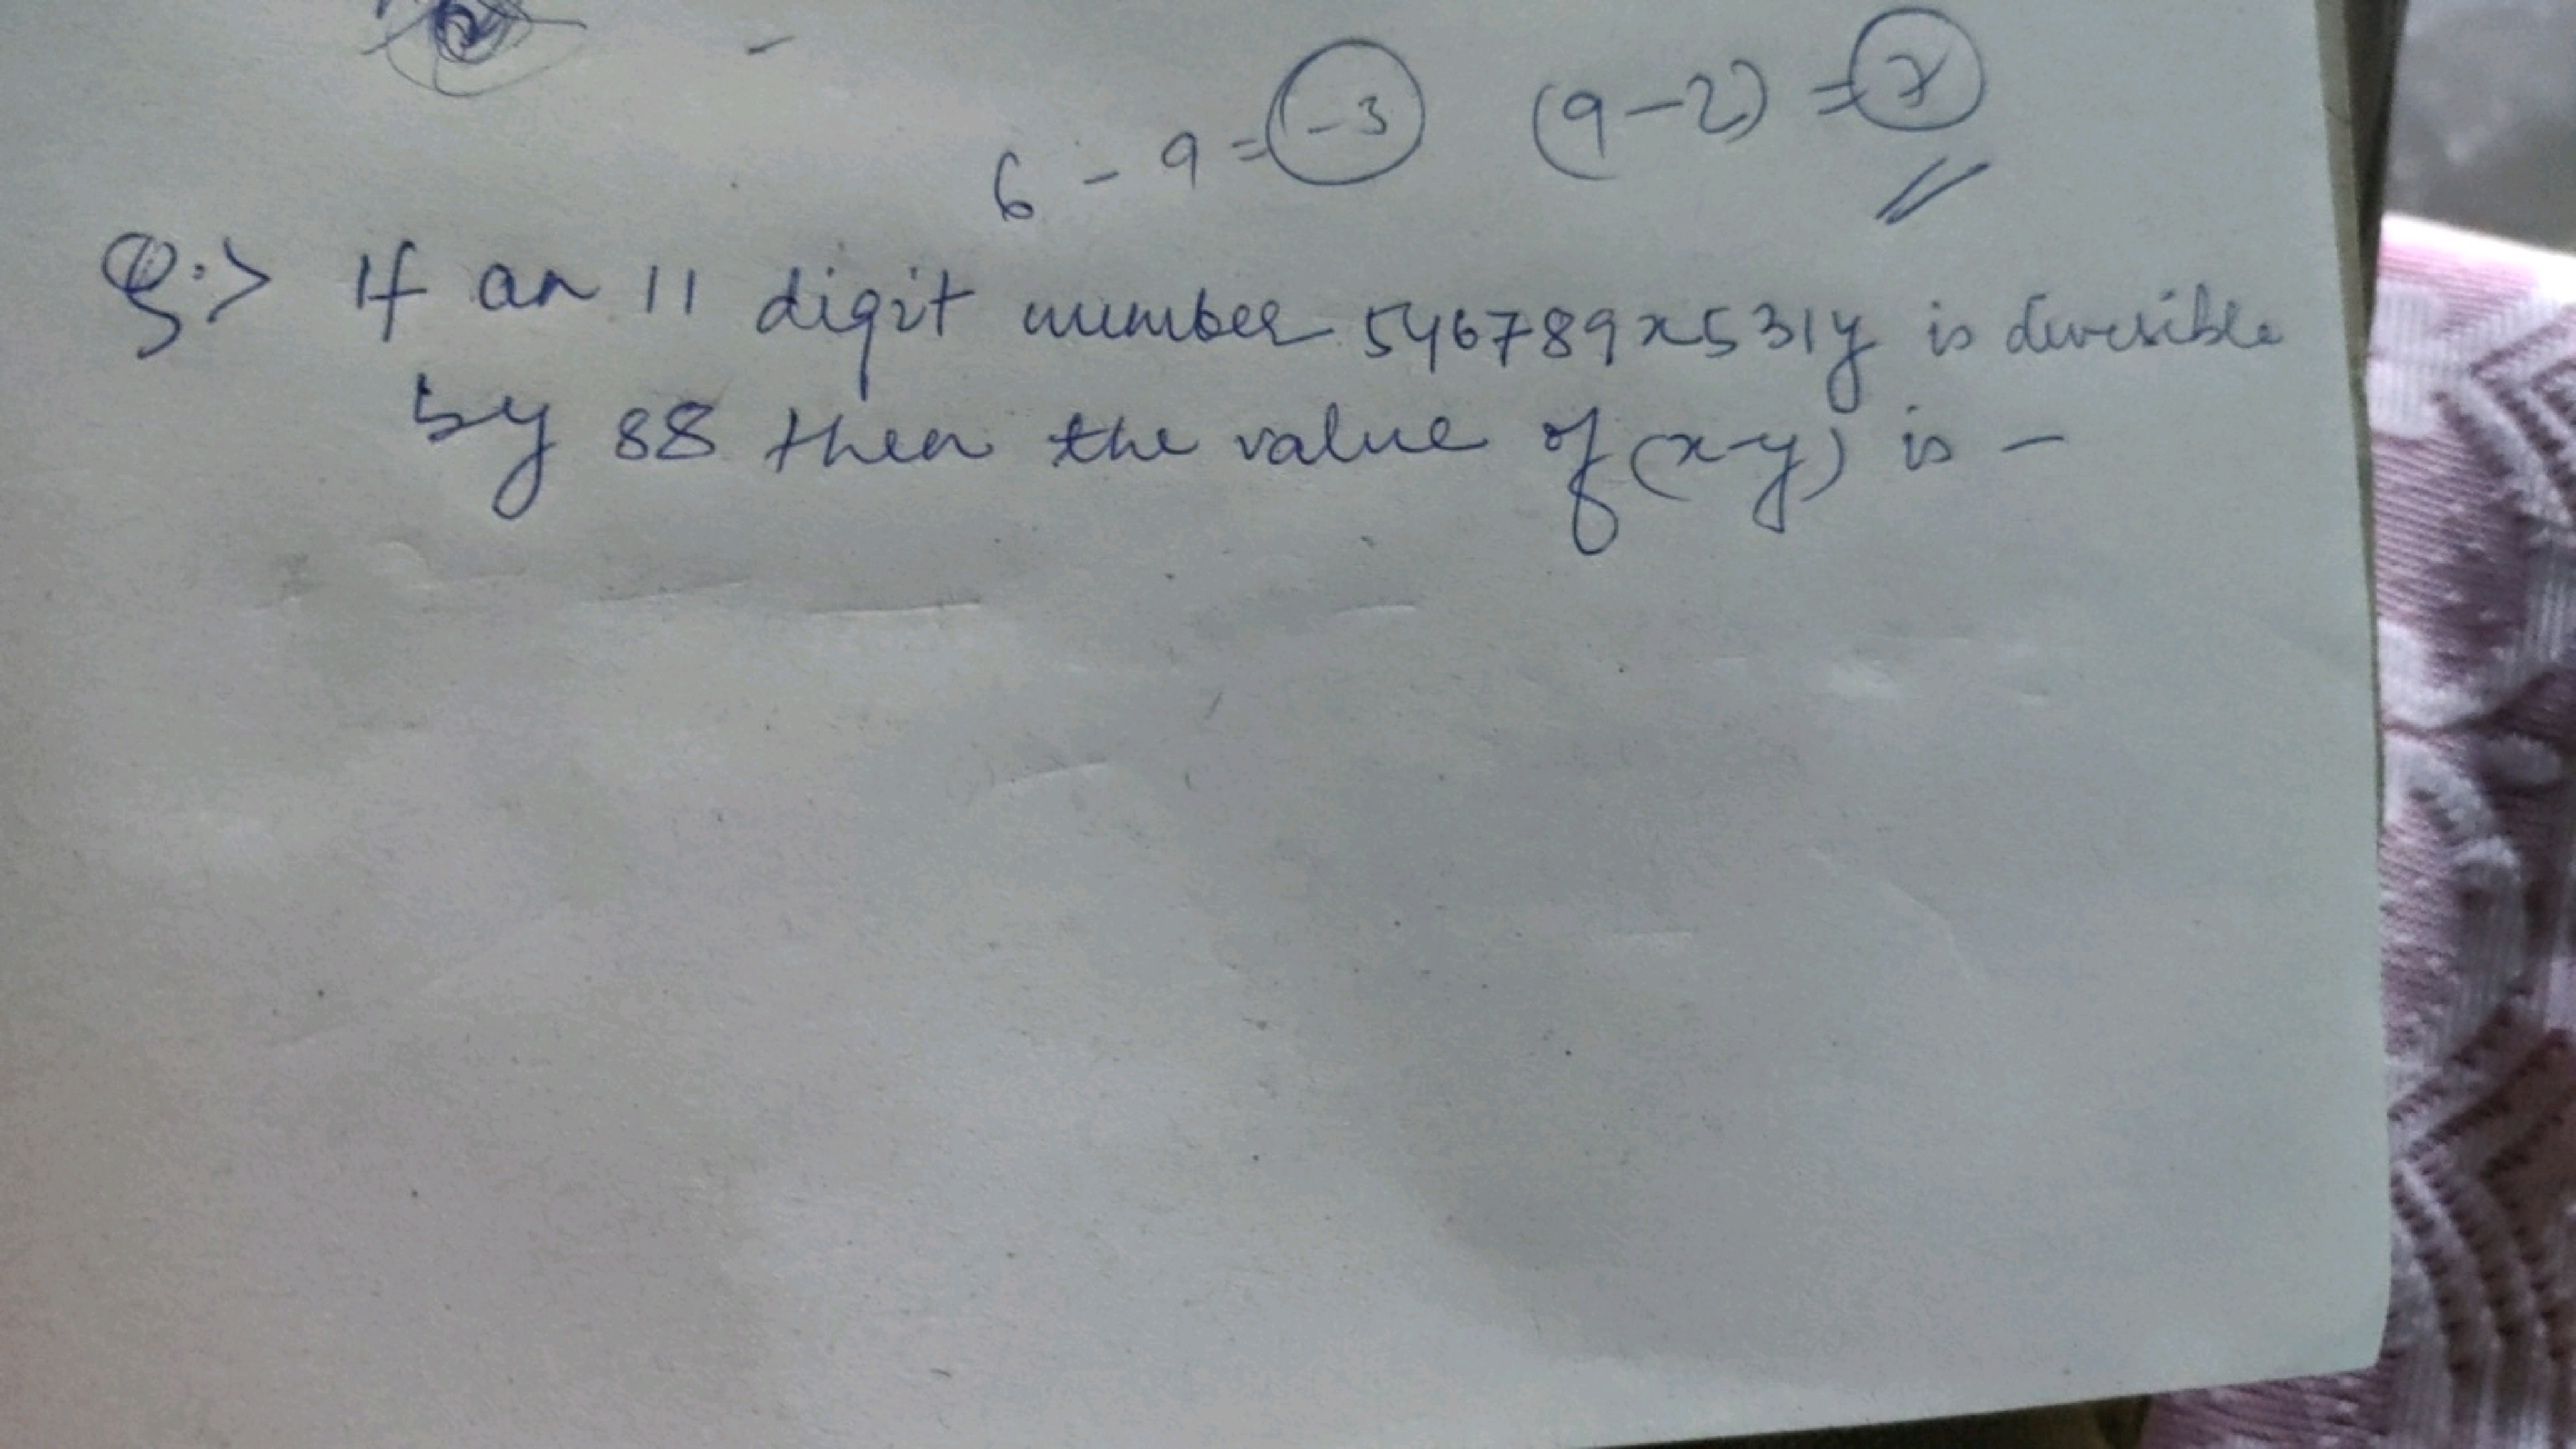 6 - 9 = -3 (9-2) = 7
Q:> If an 11 digit number 546789x531y is divisible
by 88 then the value of (x-y) is -